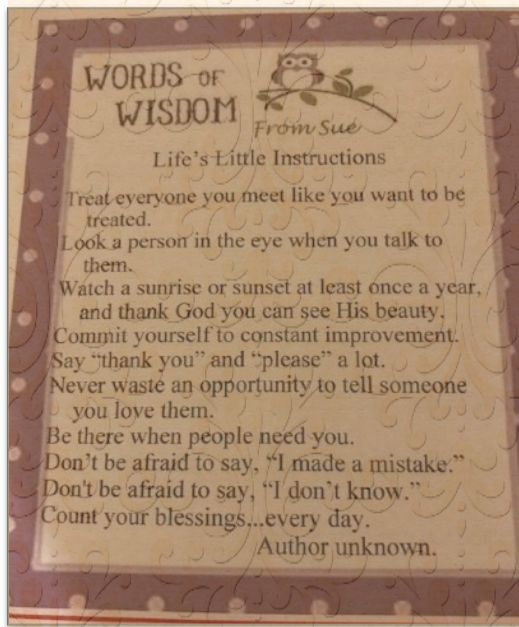 WORDS OF
WISDOM
From Sue
Life's Little Instructions
Treat everyone you meet like you want to be
treated.
Look a person in the eye when you talk to
them.
Watch a sunrise or sunset at least once a year,
and thank God you can see His beauty.
Commit yourself to constant improvement.
Say “thank you” and “please” a lot.
Never waste an opportunity to tell someone
you love them.
Be there when people need you.
Don't be afraid to say, “I made a mistake.”
Don't be afraid to say, “I don't know.”
Count your blessings...every day.
Author unknown.